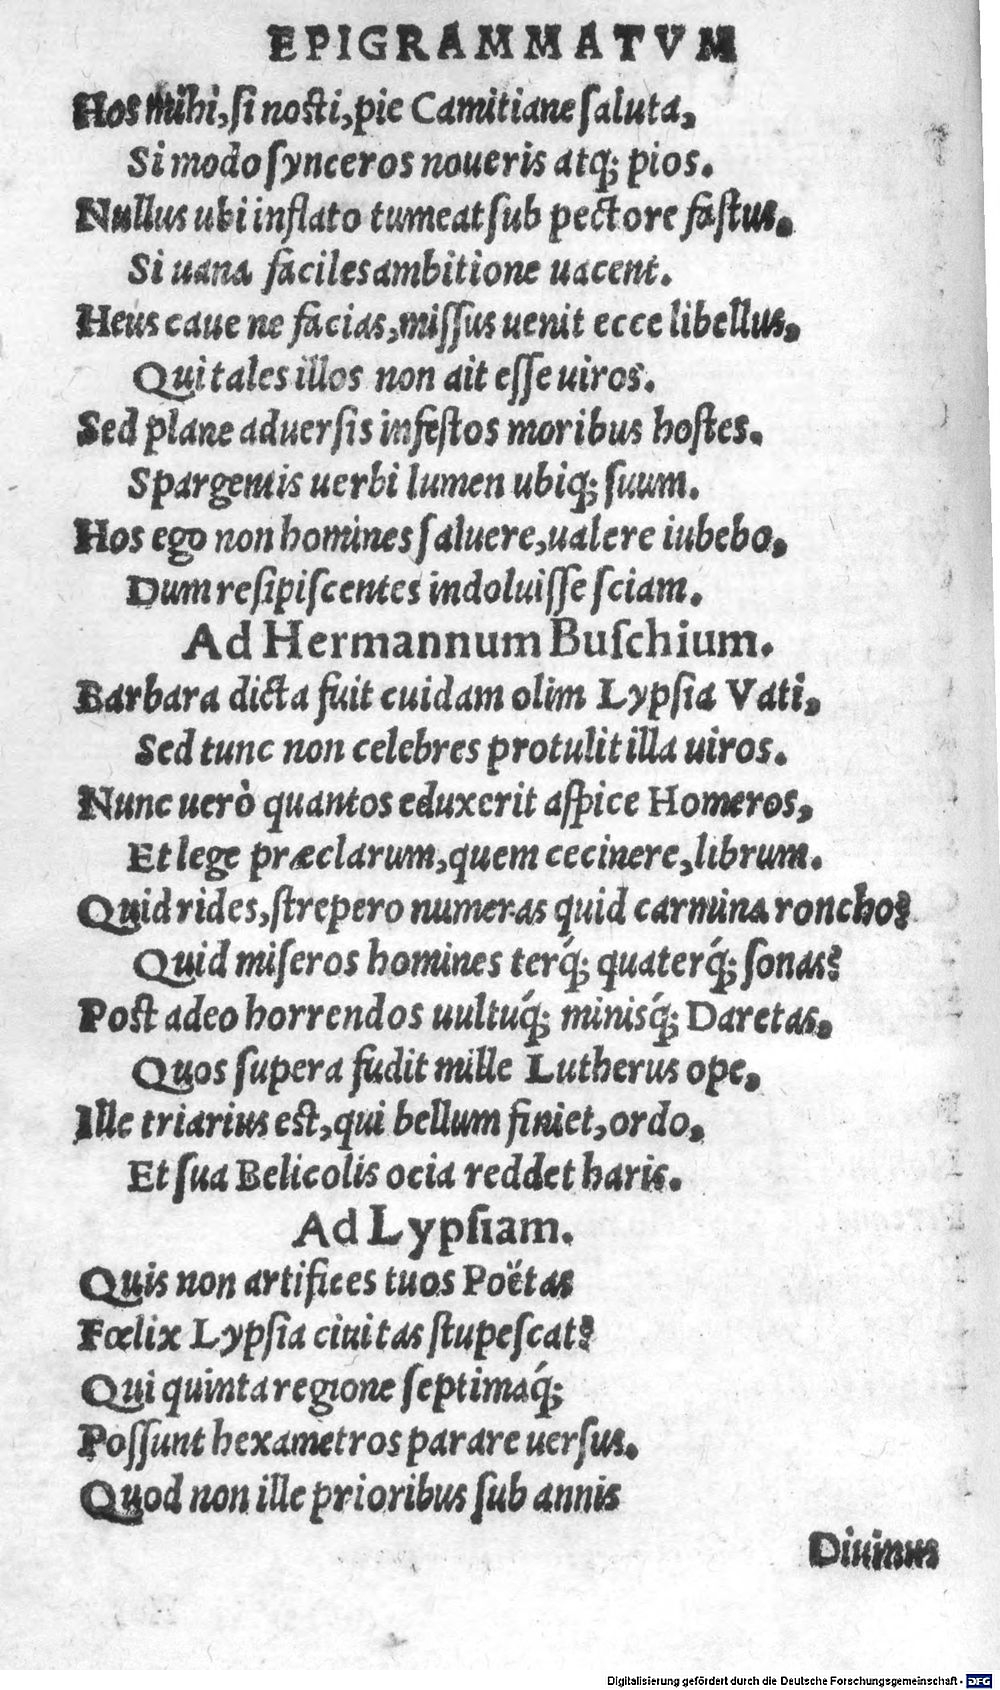 EPIGRAMMATVM
Hos mihi, ſi noſti, pie Camitiane ſaluta,
Si modo ſynceros noueris atq; pios.
Nullus ubi inflato tumeat ſub pectore faſtus,
Si uana faciles ambitione uacent.
Heus caue ne facias, miſſus uenit ecce libellus,
Qui tales illos non ait eſſe uiros.
Sed plane aduerſis infeſtos moribus hoſtes,
Spargentis uerbi lumen ubiq; ſuum.
Hos ego non homines ſaluere, ualere iubebo,
Dum reſipiſcentes indoluiſſe ſciam.
Ad Hermannum Buſchium.
Barbara dicta fuit cuidam olim Lypſia Vati,
Sed tunc non celebres protulit illa uiros.
Nunc uerò quantos eduxerit aſpice Homeros,
Et lege præclarum, quem cecinere, librum.
Quid rides, ſtrepero numeras quid carmina roncho?
Quid miſeros homines terq́; quaterq́; ſonas?
Poſt adeo horrendos uultuq́; minisq́; Daretas,
Quos ſupera fudit mille Lutherus ope,
Ille triarius eſt, qui bellum finiet, ordo,
Et ſua Belicolis ocia reddet haris.
Ad Lypſiam.
Quis non artifices tuos Poëtas
Fœlix Lypſia ciuitas ſtupeſcat?
Qui quinta regione ſeptimaq́;
Poſſunt hexametros parare uerſus.
Quod non ille prioribus ſub annis
Diuinus
Digitalisierung gefördert durch die Deutsche Forschungsgemeinschaft - DFG